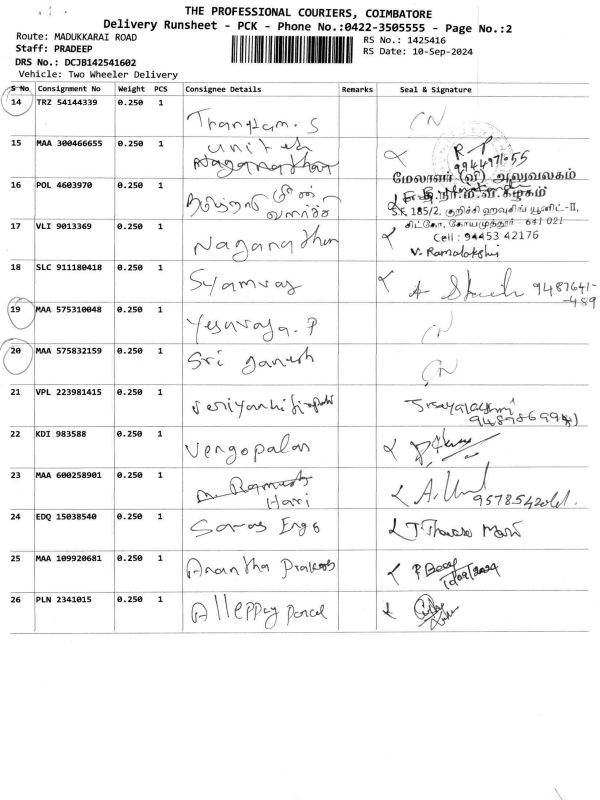 THE PROFESSIONAL COURIERS, COIMBATORE
Delivery Runsheet - PCK - Phone No.:0422-3505555 - Page No.:2
Route: MADUKKARAI ROAD
RS No.: 1425416
Staff: PRADEEP
RS Date: 10-Sep-2024
DRS No.: DCJB142541602
Vehicle: Two Wheeler Delivery
S No Consignment No Weight PCS Consignee Details Remarks Seal & Signature
14 TRZ 54144339 0.250 1 CN
15 MAA 300466655 0.250 1 united
Naganathan
R.P
மேலாளர் (வி) அலுவலகம்
16 POL 4603970 0.250 1
S.F. 185/2, குறிச்சி ஹவுசிங் யூனிட்-II,
17 VLI 9013369 0.250 1 Naganathan
சிட்கோ, கோயமுத்தூர் - 641 021
Cell : 94453 42176
V. Ramalakshmi
18 SLC 911180418 0.250 1 Syamraj
19 MAA 575310048 0.250 1 Yesuraja. P CN
20 MAA 575832159 0.250 1 Sri Ganesh CN
21 VPL 223981415 0.250 1
22 KDI 983588 0.250 1 Vengopalan
23 MAA 600258901 0.250 1 M. Ramesh
Hari
24 EDQ 15038540 0.250 1 Saras Engg
25 MAA 109920681 0.250 1 Anantha Prakash
10/09/2024
26 PLN 2341015 0.250 1 Alleppey Parcel